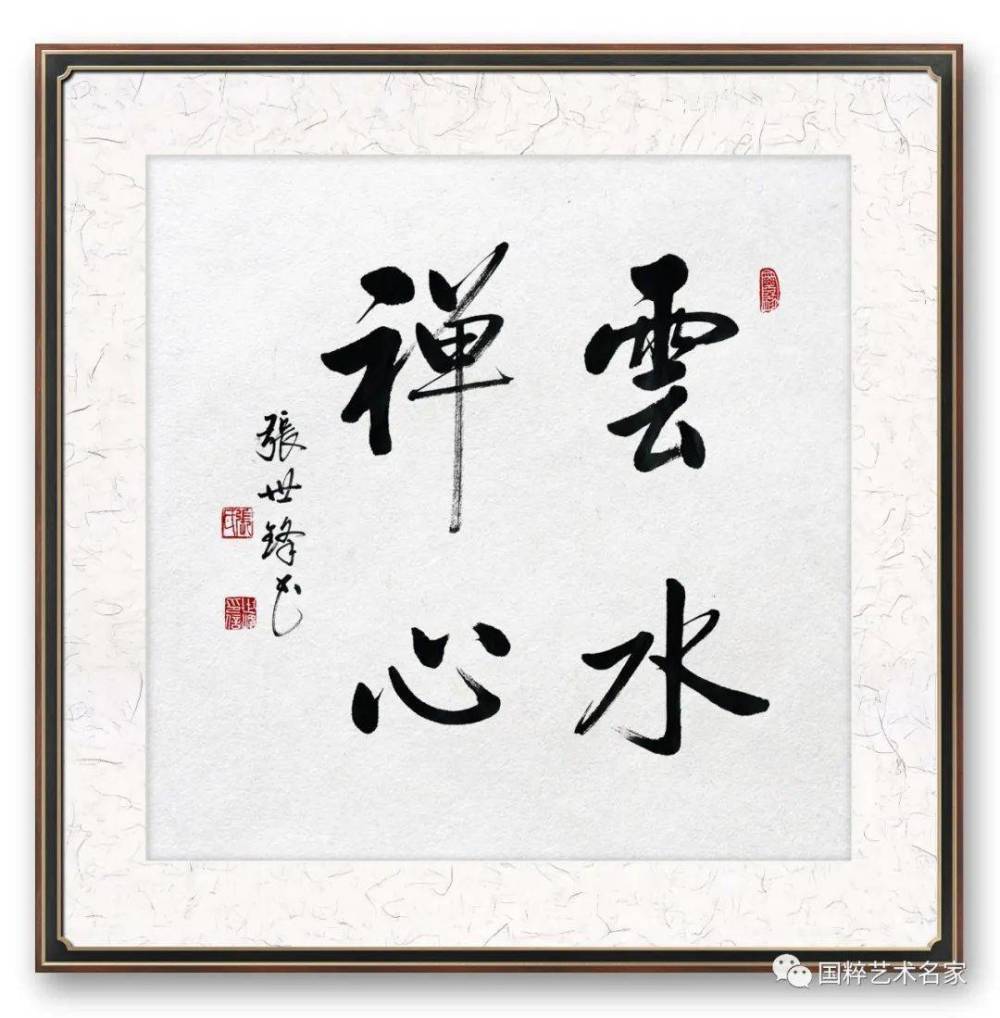 雲水
禅心
張世鋒书
国粹艺术名家